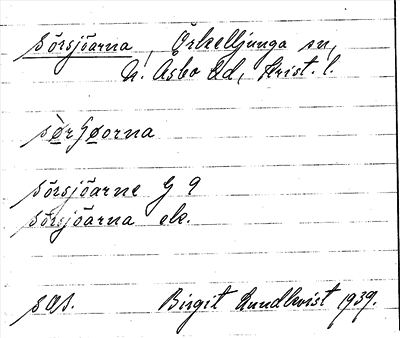 Sörsjöarna, Örkelljunga sn,
N. Åsbo hd, Krist. l.
sørʃøorna
Sörsjöarne G 9
Sörsjöarna ek.
SOS. Birgit Lundkvist 1939.